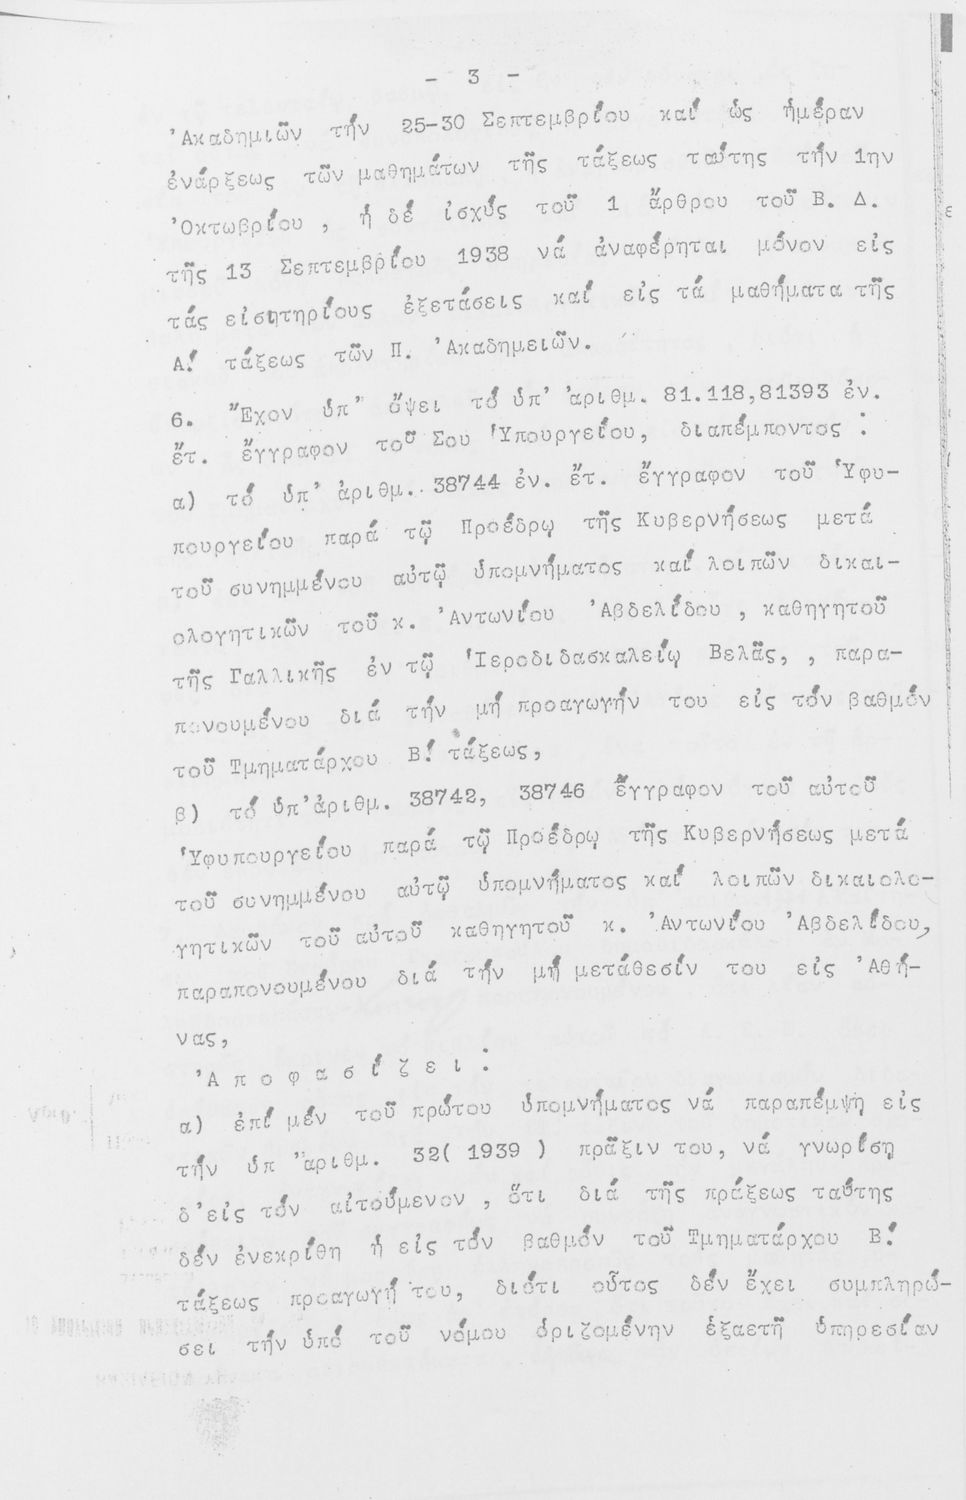 - 3 -
Ἀκαδημιῶν τήν 25-30 Σεπτεμβρίου καί ὡς ἡμέραν
ἐνάρξεως τῶν μαθημάτων τῆς τάξεως ταύτης τήν 1ην
Ὀκτωβρίου , ἡ δέ ἰσχύς τοῦ 1 ἄρθρου τοῦ Β. Δ.
τῆς 13 Σεπτεμβρίου 1938 νά ἀναφέρηται μόνον εἰς
τάς εἰσητηρίους ἐξετάσεις καί εἰς τά μαθήματα τῆς
Α! τάξεως τῶν Π. Ἀκαδημειῶν.
6. Ἔχον ὑπ' ὄψει τό ὑπ' ἀριθμ. 81.118,81393 ἐν.
ἔτ. ἔγγραφον τοῦ Σου Ὑπουργείου, διαπέμποντος :
α) τό ὑπ' ἀριθμ.. 38744 ἐν. ἔτ. ἔγγραφον τοῦ Ὑφυ-
πουργείου παρά τῷ Προέδρῳ τῆς Κυβερνήσεως μετά
τοῦ συνημμένου αὐτῷ ὑπομνήματος καί λοιπῶν δικαι-
ολογητικῶν τοῦ κ. Ἀντωνίου Ἀβδελίδου , καθηγητοῦ
τῆς Γαλλικῆς ἐν τῷ Ἱεροδιδασκαλείῳ Βελᾶς, , παρα-
πονουμένου διά τήν μή προαγωγήν του εἰς τόν βαθμόν
τοῦ Τμηματάρχου Β! τάξεως,
β) τό ὑπ'ἀριθμ. 38742, 38746 ἔγγραφον τοῦ αὐτοῦ
Ὑφυπουργείου παρά τῷ Προέδρῳ τῆς Κυβερνήσεως μετά
τοῦ συνημμένου αὐτῷ ὑπομνήματος καί λοιπῶν δικαιολο-
γητικῶν τοῦ αὐτοῦ καθηγητοῦ κ. Ἀντωνίου Ἀβδελίδου,
παραπονουμένου διά τήν μή μετάθεσίν του εἰς Ἀθή-
νας,
Ἀ π ο φ α σ ί ζ ε ι :
α) ἐπί μέν τοῦ πρώτου ὑπομνήματος νά παραπέμψῃ εἰς
τήν ὑπ ἀριθμ. 32( 1939 ) πρᾶξιν του, νά γνωρίσῃ
δ'εἰς τόν αἰτούμενον , ὅτι διά τῆς πράξεως ταύτης
δέν ἐνεκρίθη ἡ εἰς τόν βαθμόν τοῦ Τμηματάρχου Β!
τάξεως προαγωγή του, διότι οὗτος δέν ἔχει συμπληρώ-
σει τήν ὑπό τοῦ νόμου ὁριζομένην ἑξαετῆ ὑπηρεσίαν